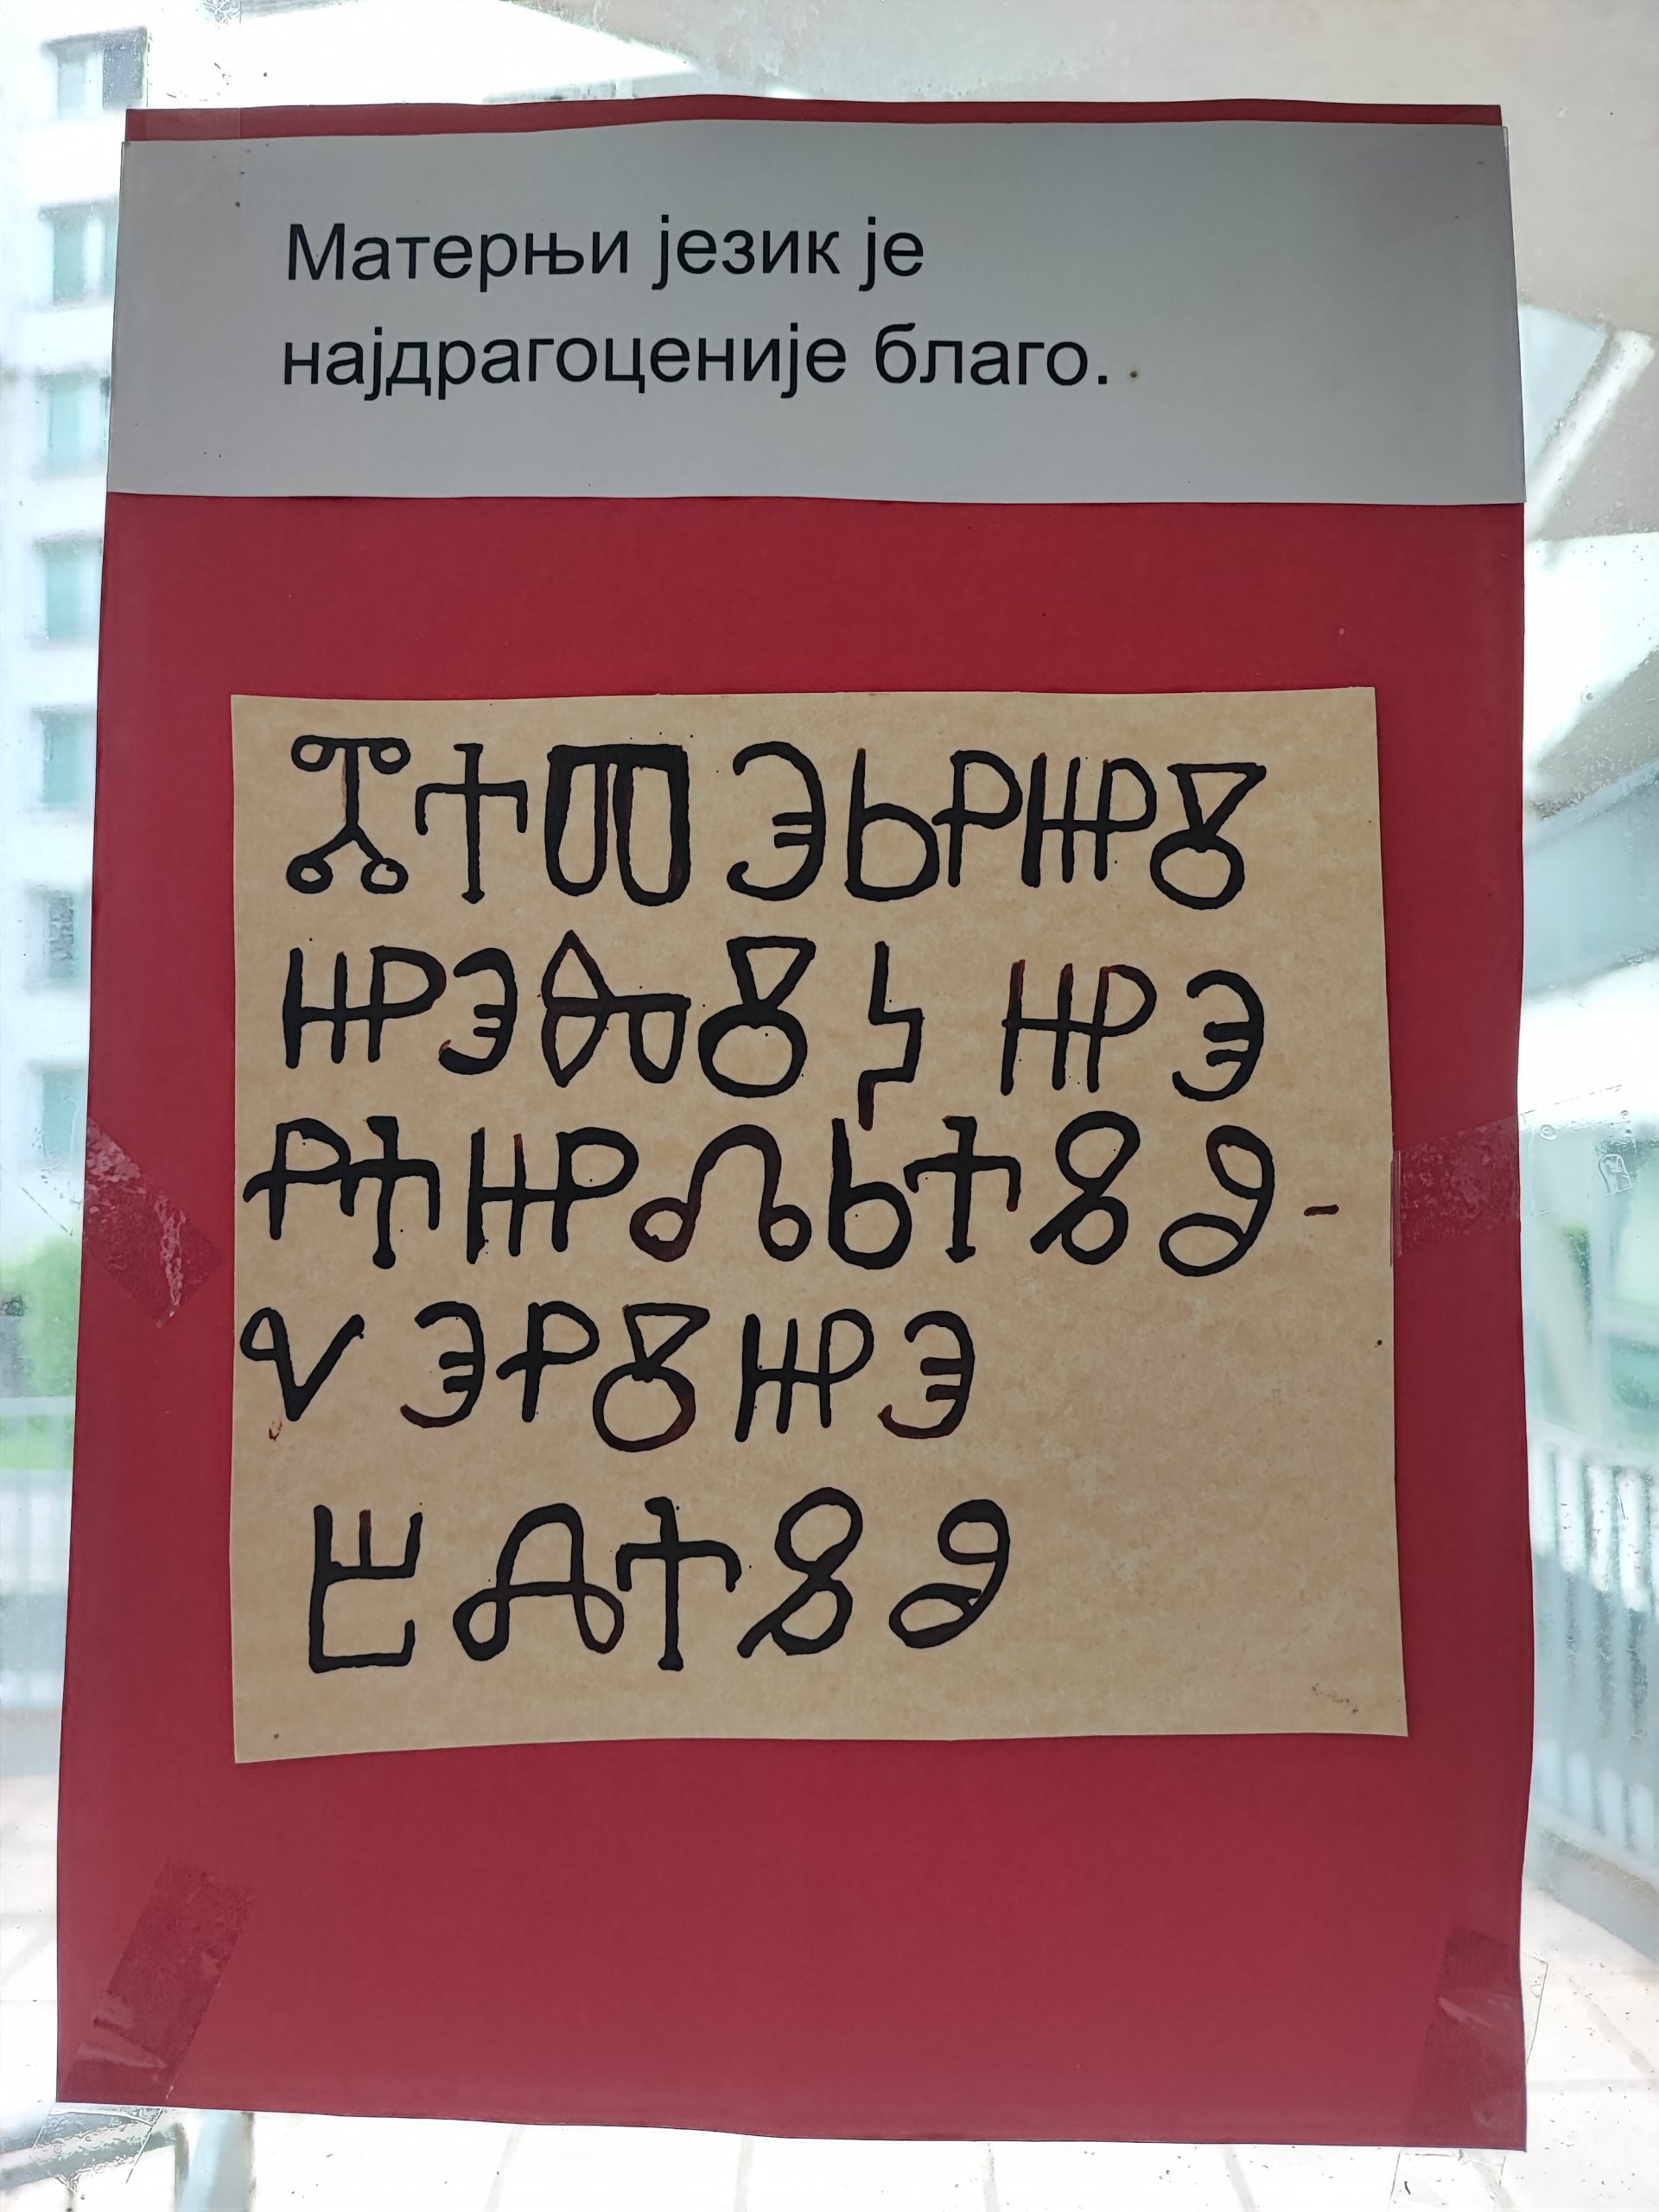 Матерњи језик је
најдрагоценије благо.
ⰏⰀⰕⰅⰓⰐⰌⰉ
ⰌⰅⰈⰉⰍ ⰌⰅ
ⰐⰀⰌⰄⰓⰀⰃⰑ-
ⰜⰅⰐⰉⰌⰅ
ⰁⰎⰀⰃⰑ